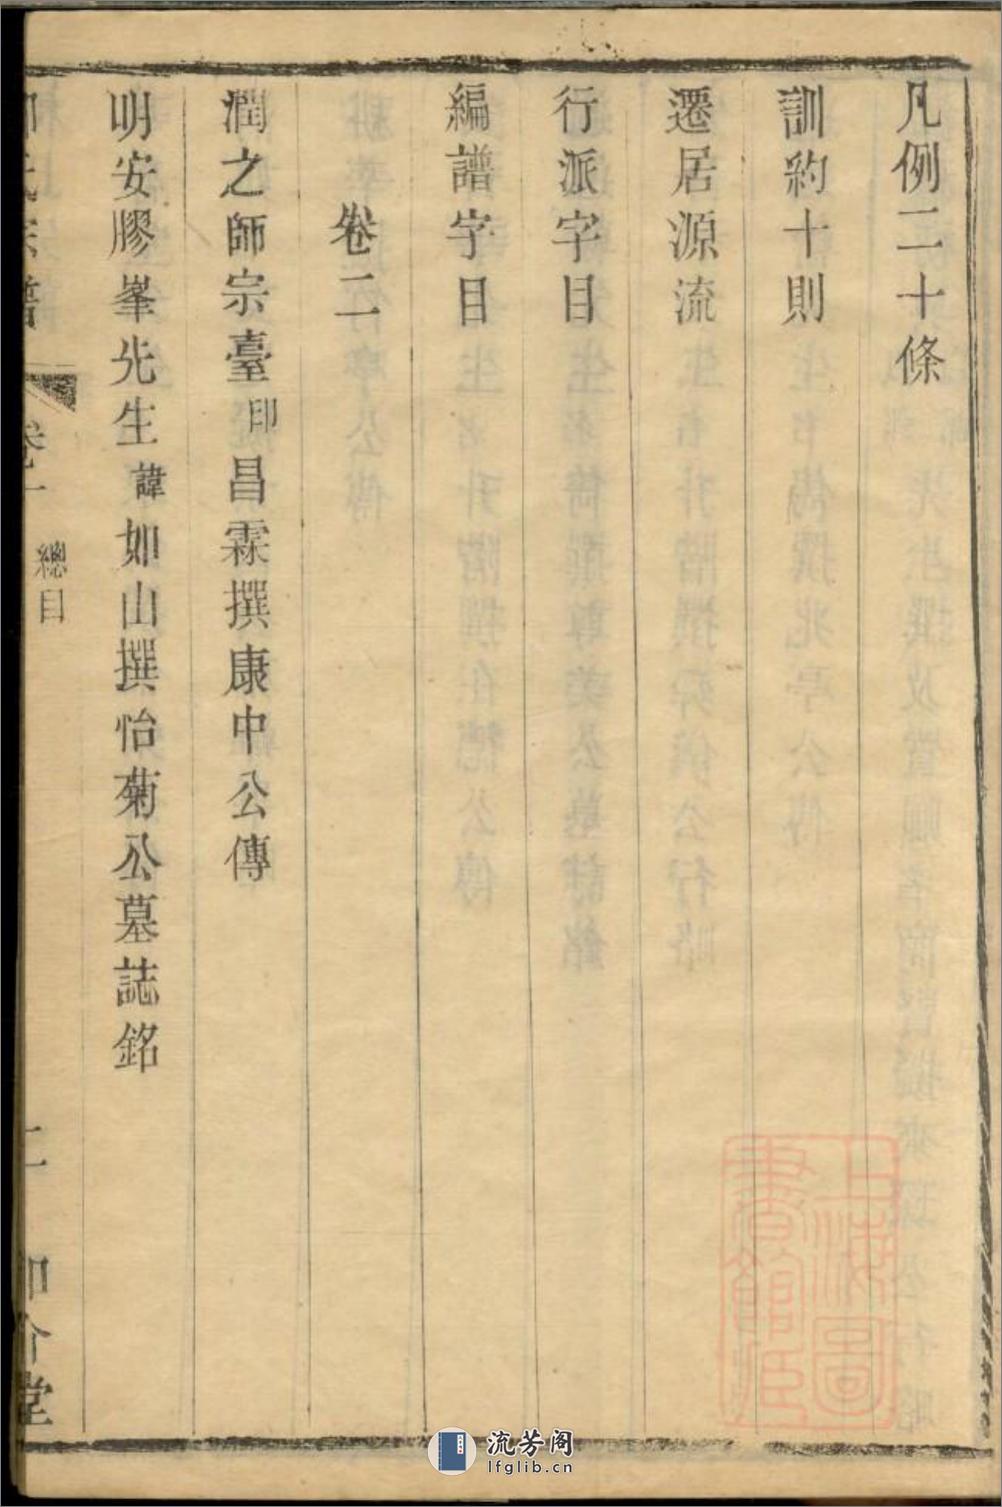 凡例二十條
訓約十則
遷居源流
行派字目
編譜字目
卷二
潤之師宗臺印昌霖撰康中公傳
明安膠峯先生諱如山撰怡菊公墓誌銘
氏宗譜 卷一 總目 二 介堂
上海圖書館藏
流芳阁
lfglib.cn